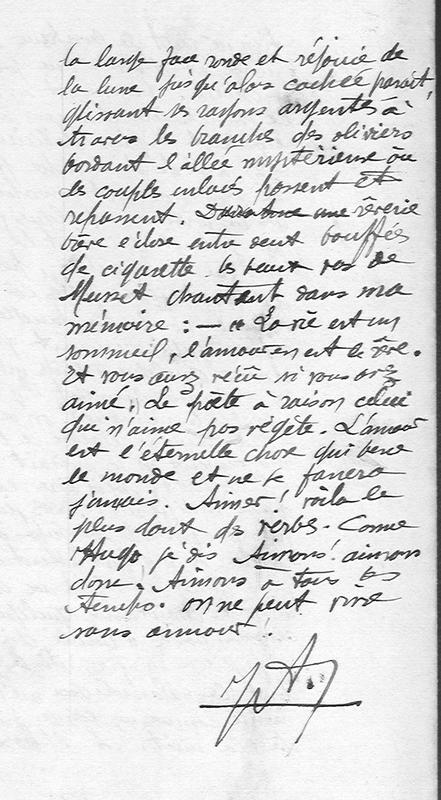 la large face ronde et réjouie de
la lune jusqu'alors cachée parait,
glissant ses rayons argentés à
travers les branches des oliviers
bordant l'allée mystérieuse où
des couples enlacés passent et
repassent. Dans une rêverie
éclose entre deux bouffées
de cigarette les beaux vers de
Musset chantent dans ma
mémoire : — « La vie est un
sommeil, l'amour en est le rêve.
Et vous aurez vécu si vous avez
aimé. Le poète à raison celui
qui n'aime pas végète. L'amour
est l'éternelle chose qui
le monde et ne se fanera
jamais. Aimer! voila le
plus doux des verbes. Comme
Hugo je dis Aimons! aimons
donc! Aimons à tous les
temps. on ne peut vivre
sans amour!